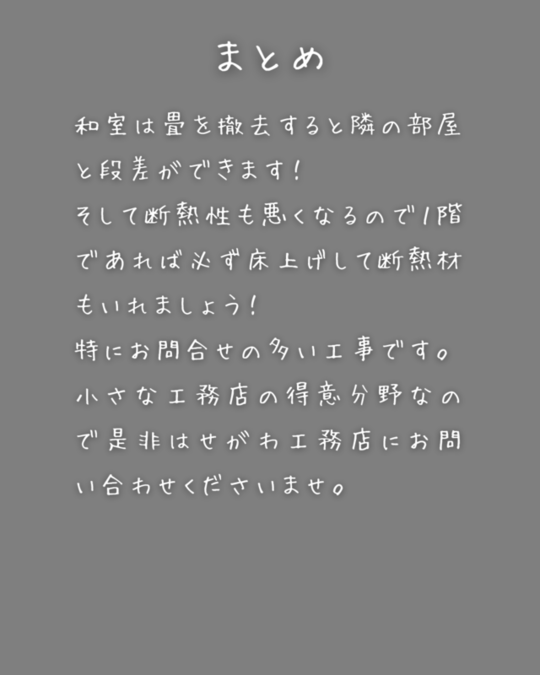 まとめ
和室は畳を撤去すると隣の部屋
と段差ができます!
そして断熱性も悪くなるので1階
であれば必ず床上げして断熱材
もいれましょう!
特にお問合せの多い工事です。
小さな工務店の得意分野なの
で是非はせがわ工務店にお問
い合わせくださいませ。